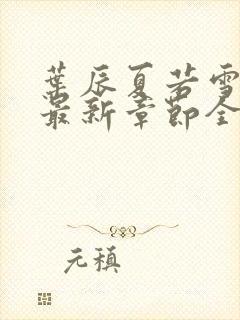 葉辰夏若雪
最新章節全
元稹